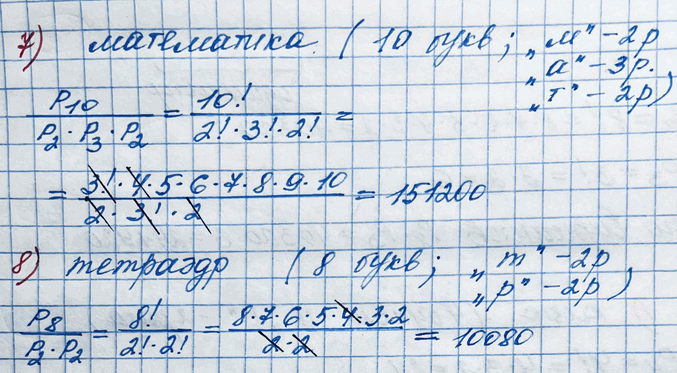 7) математика (10 букв; „м" - 2р
„а" - 3р.
„т" - 2р)
P₁₀ / (P₂ · P₃ · P₂) = 10! / (2! · 3! · 2!) =
= (3! · 4 · 5 · 6 · 7 · 8 · 9 · 10) / (2 · 3! · 2) = 151200
8) тетраэдр (8 букв; „т" - 2р
„р" - 2р)
P₈ / (P₂ · P₂) = 8! / (2! · 2!) = (8 · 7 · 6 · 5 · 4 · 3 · 2) / (2 · 2) = 10080